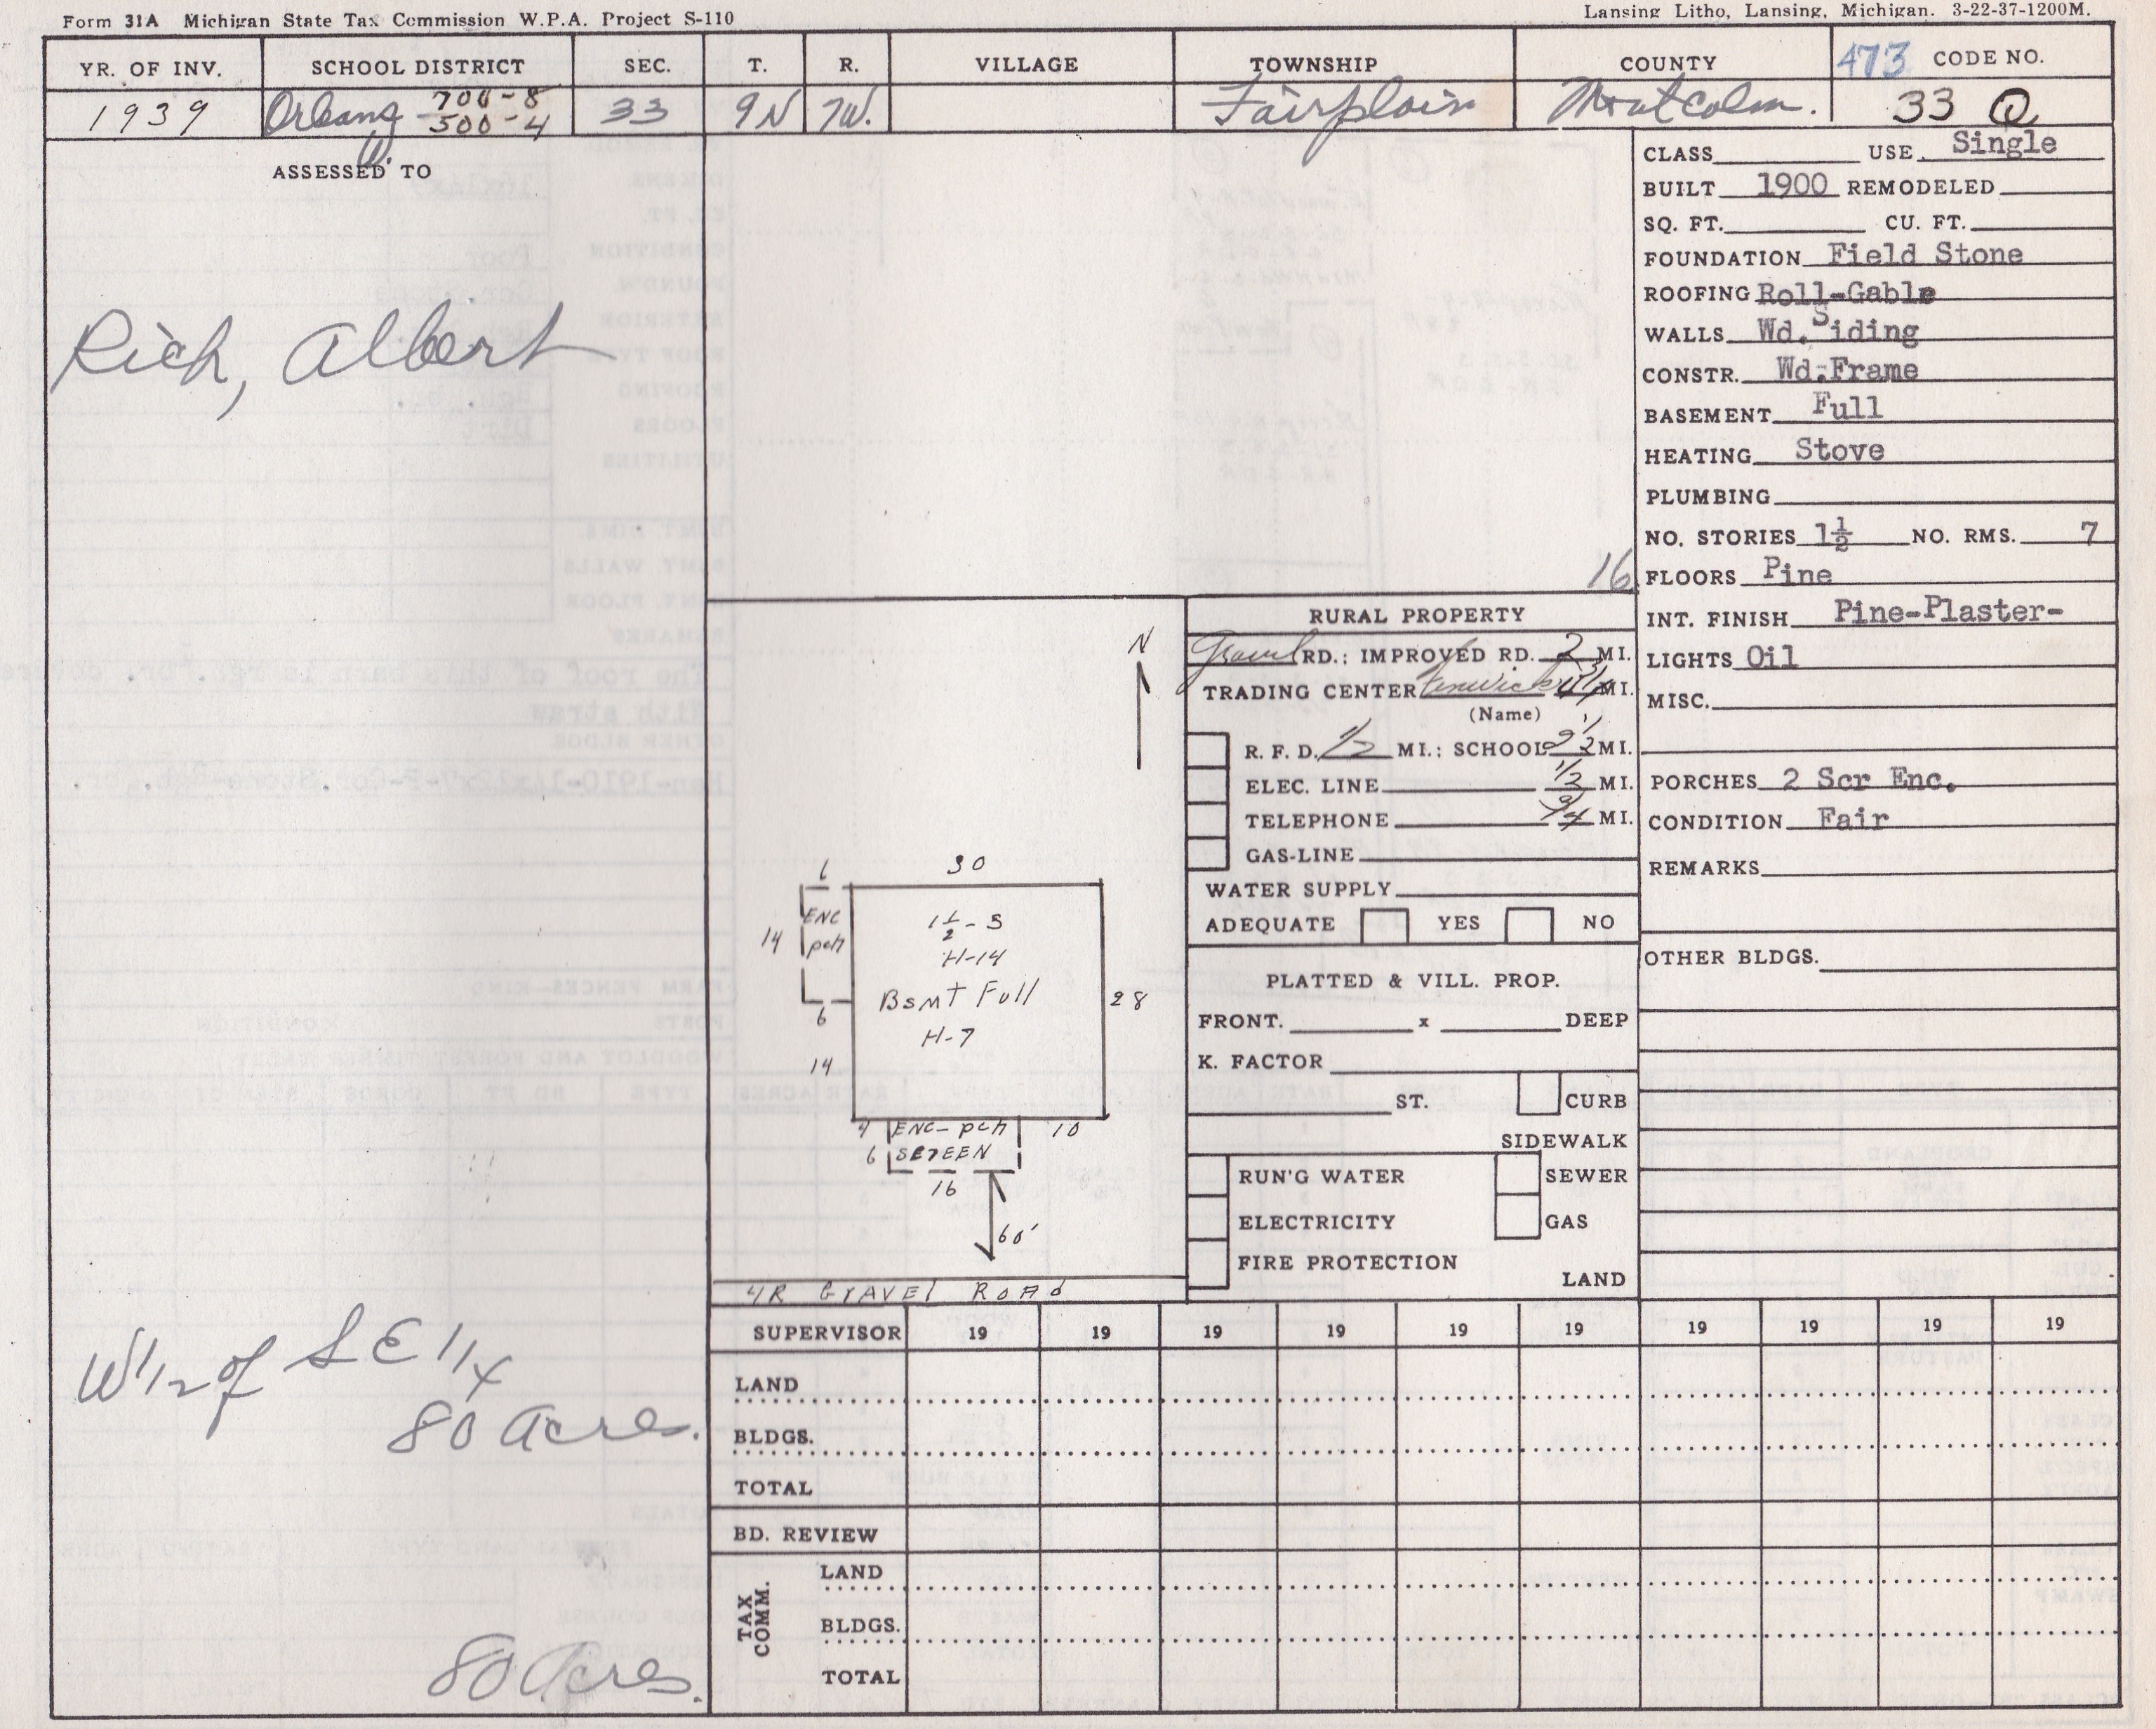 Form 31A Michigan State Tax Commission W.P.A. Project S-110
Lansing Litho, Lansing, Michigan. 3-22-37-1200M.
YR. OF INV. SCHOOL DISTRICT SEC. T. R. VILLAGE TOWNSHIP COUNTY 473 CODE NO.
1939 Orleans 700-8 500-4 33 9N 7W. Fairplain Montcalm. 33 Q
ASSESSED TO
Rich, Albert
W 1/2 of SE 1/4
80 Acres.
80 Acres.
CLASS USE Single
BUILT 1900 REMODELED
SQ. FT. CU. FT.
FOUNDATION Field Stone
ROOFING Roll-Gable
WALLS Wd. Siding
CONSTR. Wd.Frame
BASEMENT Full
HEATING Stove
PLUMBING
NO. STORIES 1½ NO. RMS. 7
16
FLOORS Pine
INT. FINISH Pine-Plaster-
LIGHTS Oil
MISC.
PORCHES 2 Scr Enc.
CONDITION Fair
REMARKS
OTHER BLDGS.
RURAL PROPERTY
Gravel RD.; IMPROVED RD. 2 MI.
TRADING CENTER Fenwick MI.
(Name)
R. F. D. 1/2 MI.; SCHOOL 2 1/2 MI.
ELEC. LINE 1/2 MI.
TELEPHONE 3/4 MI.
GAS-LINE
WATER SUPPLY
ADEQUATE YES NO
PLATTED & VILL. PROP.
FRONT. x DEEP
K. FACTOR
ST. CURB
SIDEWALK
RUN'G WATER SEWER
ELECTRICITY GAS
FIRE PROTECTION
LAND
N
6 30
ENC
pch
14
1½-S
H-14
Bsmt Full
H-7
28
6
14
4 ENC-pch 10
6 SCREEN
16
60'
4R GRAVEL ROAd
SUPERVISOR 19 19 19 19 19 19 19 19 19 19
LAND
BLDGS.
TOTAL
BD. REVIEW
TAX COMM.
LAND
BLDGS.
TOTAL